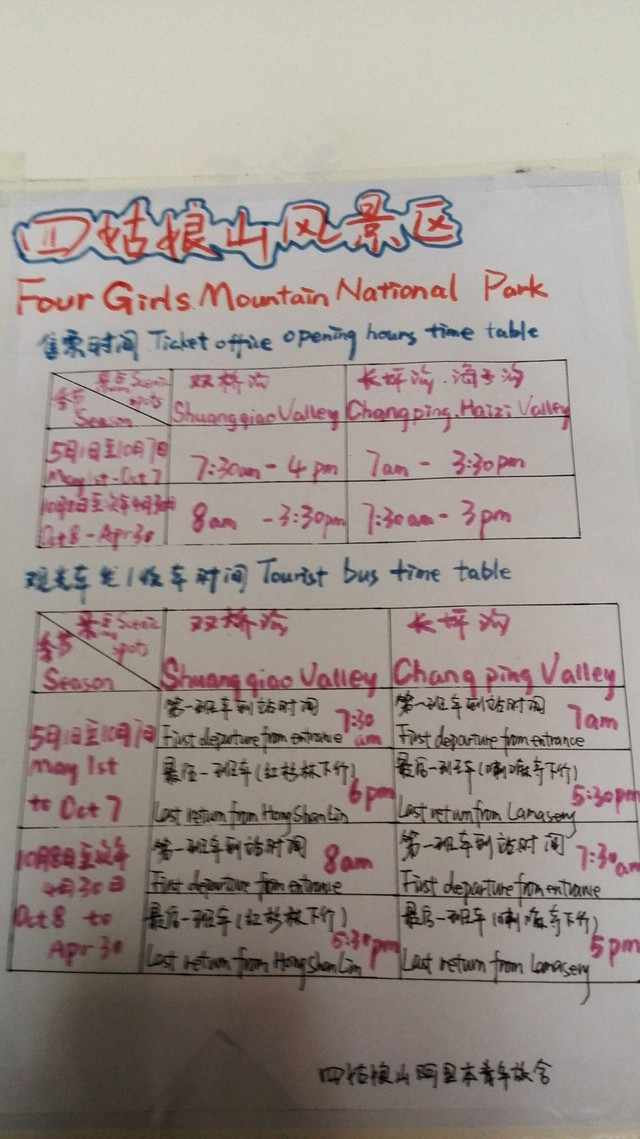 四姑娘山风景区
Four Girls Mountain National Park
售票时间 Ticket office opening hours time table
景点Scenic spots
季节 Season
双桥沟
Shuangqiao Valley
长坪沟.海子沟
Changping.Haizi Valley
5月1日至10月7日
May 1st-Oct 7
7:30am - 4pm
7am - 3:30pm
10月8日至次年4月30日
Oct 8 - Apr 30
8am - 3:30pm
7:30am - 3pm
观光车发/收车时间 Tourist bus time table
景点Scenic spots
季节
Season
双桥沟
Shuangqiao Valley
长坪沟
Changping Valley
5月1日至10月7日
May 1st
to Oct 7
第一班车到站时间 7:30 am
First departure from entrance
第一班车到站时间 7am
First departure from entrance
最后一班车(红杉林下行) 6pm
Last return from HongShanLin
最后一班车(喇嘛寺下行) 5:30pm
Last return from Lamasery
10月8日至次年
4月30日
Oct 8 to
Apr 30
第一班车到站时间 8am
First departure from entrance
第一班车到站时间 7:30am
First departure from entrance
最后一班车(红杉林下行)
Last return from HongShanLin
最后一班车(喇嘛寺下行) 5pm
Last return from Lamasery
四姑娘山阿里本青年旅舍